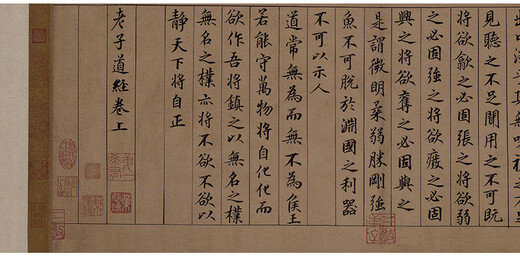 見聽之不足聞用之不可既
將欲歙之必固張之將欲弱
之必固強之將欲廢之必固
興之將欲奪之必固與之
是謂微明柔弱勝剛強
魚不可脫於淵國之利器
不可以示人
道常無為而無不為侯王
若能守萬物將自化化而
欲作吾將鎮之以無名之樸
無名之樸亦將不欲不欲以
靜天下將自正
老子道經卷上